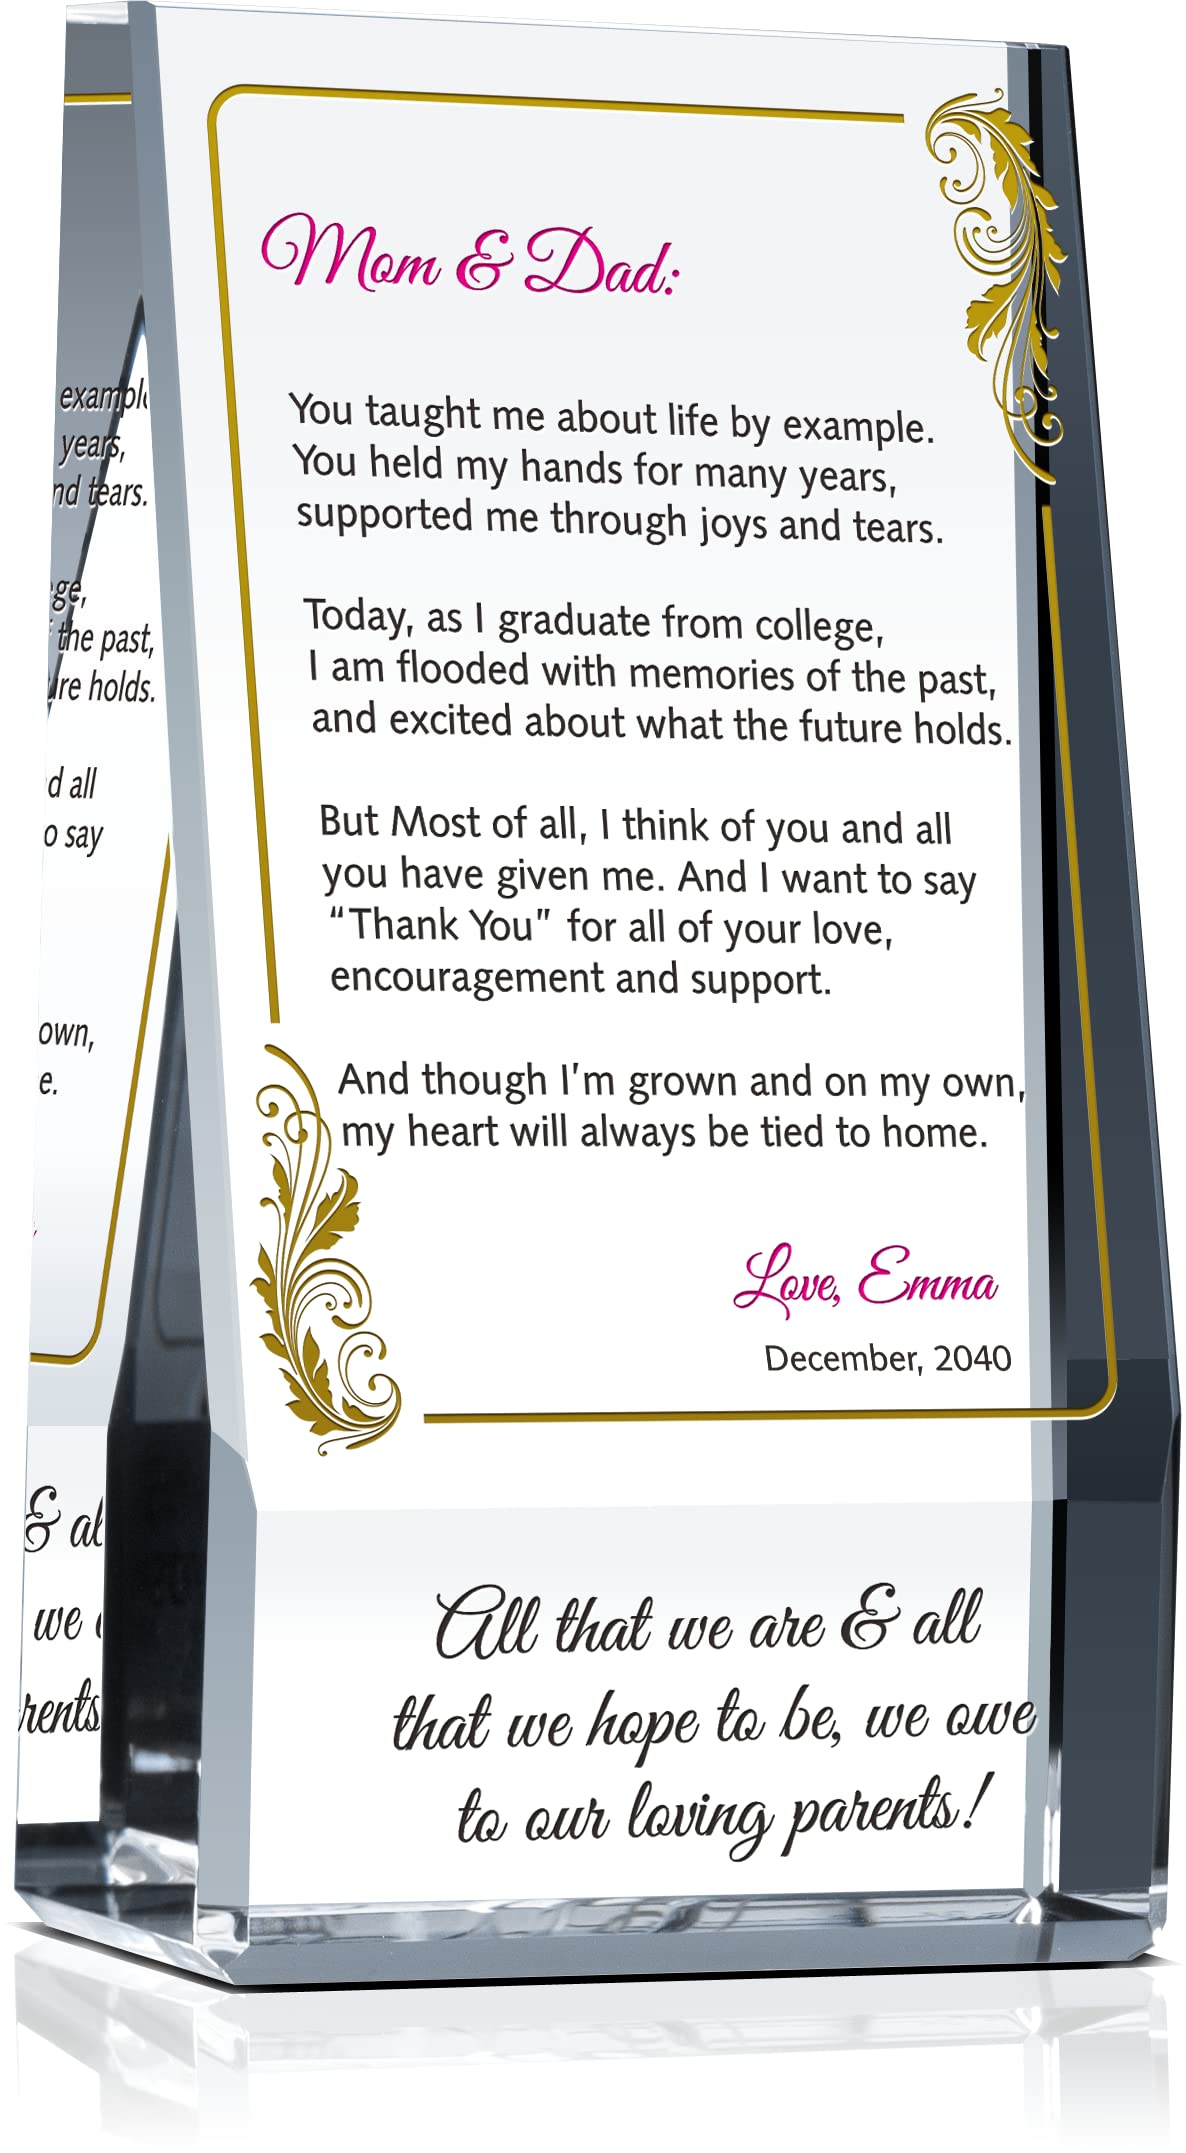 Mom & Dad:
You taught me about life by example.
You held my hands for many years,
supported me through joys and tears.
Today, as I graduate from college,
I am flooded with memories of the past,
and excited about what the future holds.
But Most of all, I think of you and all
you have given me. And I want to say
“Thank You” for all of your love,
encouragement and support.
And though I'm grown and on my own,
my heart will always be tied to home.
Love, Emma
December, 2040
All that we are & all
that we hope to be, we owe
to our loving parents!